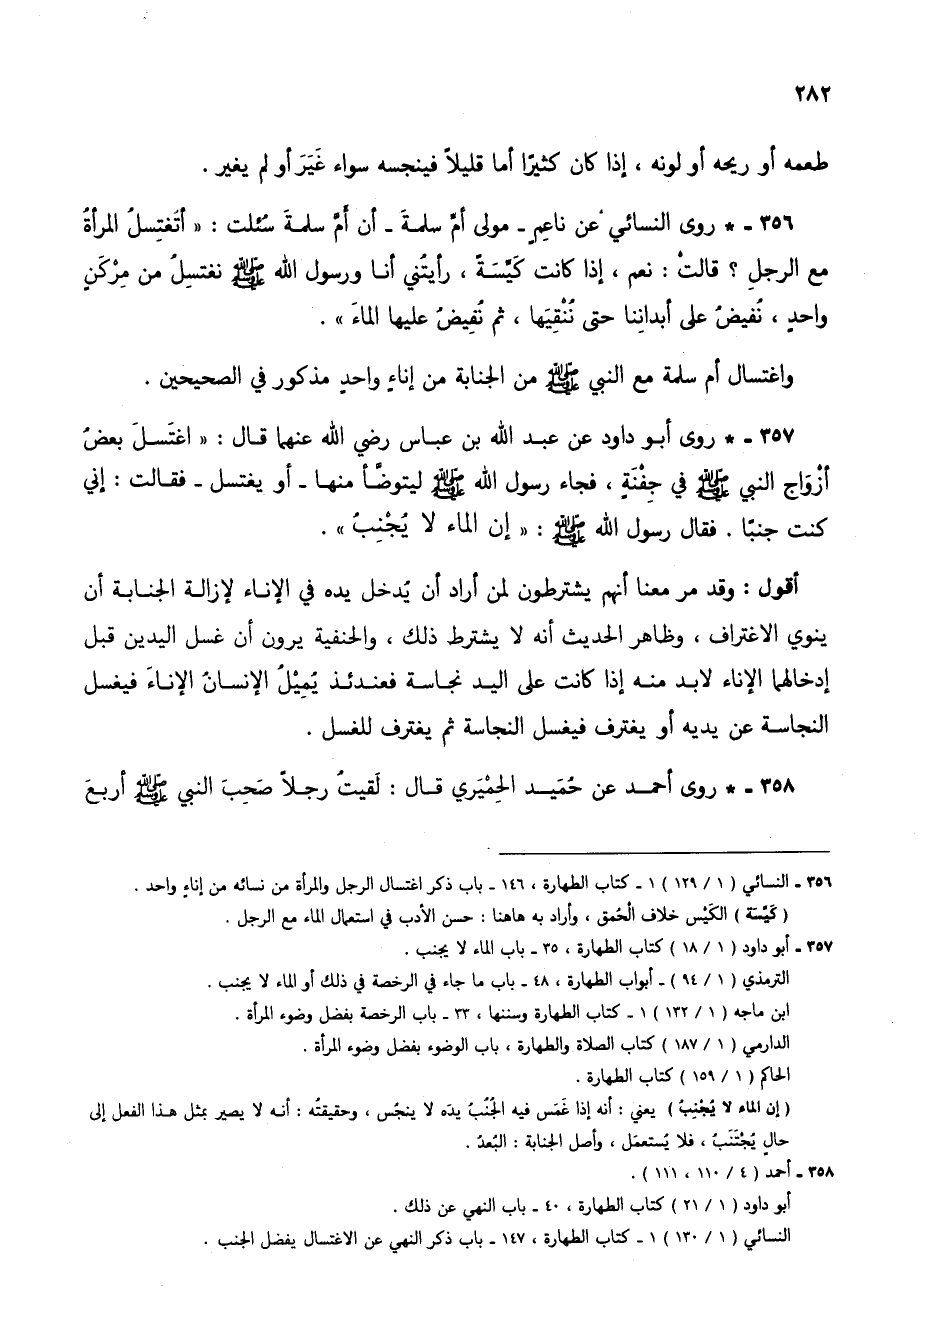 ٢٨٢
طعمه أو ريحه أو لونه ، إذا كان كثيرًا أما قليلاً فينجسه سواء غَيَّرَ أو لم يغير .
٣٥٦ ـ * روى النسائي عن ناعِمٍ ـ مولى أمِّ سلمةَ ـ أن أمَّ سلمةَ سُئلت : « أتَغتِسلُ المرأةُ
مع الرجلِ ؟ قالتْ : نعم ، إذا كانت كَيِّسَةً ، رأيتُني أنا ورسول الله ﷺ نغتسِلُ من مِرْكَنٍ
واحدٍ ، نُفيضُ على أبدانِنا حتى نُنْقِيَها ، ثم نُفِيضُ عليها الماءَ » .
واغتسال أم سلمة مع النبي ﷺ من الجنابة من إناءٍ واحدٍ مذكور في الصحيحين .
٣٥٧ ـ * روى أبو داود عن عبد الله بن عباس رضي الله عنهما قال : « اغتَسلَ بعضُ
أزْوَاج النبي ﷺ في جِفْنَةٍ ، فجاء رسول الله ﷺ ليتوضَّأ منها ـ أو يغتسل ـ فقالت : إني
كنت جنبًا . فقال رسول الله ﷺ : « إن الماء لا يُجْنِبُ » .
أقول : وقد مر معنا أنهم يشترطون لمن أراد أن يُدخل يده في الإناء لإزالة الجنابة أن
ينوي الاغتراف ، وظاهر الحديث أنه لا يشترط ذلك ، والحنفية يرون أن غسل اليدين قبل
إدخالهما الإناء لابد منه إذا كانت على اليد نجاسة فعندئذ يُمِيْلُ الإنسانُ الإناءَ فيغسل
النجاسة عن يديه أو يغترف فيغسل النجاسة ثم يغترف للغسل .
٣٥٨ ـ * روى أحمد عن حُمَيد الحِمْيَري قال : لَقيتُ رجلاً صَحِبَ النبي ﷺ أربعَ
٣٥٦ ـ النسائي ( ١ / ١٢٩ ) ١ ـ كتاب الطهارة ، ١٤٦ ـ باب ذكر اغتسال الرجل والمرأة من نسائه من إناءٍ واحد .
( كَيِّسة ) الكَيْس خلاف الْحُمق ، وأراد به هاهنا : حسن الأدب في استعمال الماء مع الرجل .
٣٥٧ ـ أبو داود ( ١ / ١٨ ) كتاب الطهارة ، ٣٥ ـ باب الماء لا يجنب .
الترمذي ( ١ / ٩٤ ) ـ أبواب الطهارة ، ٤٨ ـ باب ما جاء في الرخصة في ذلك أو الماء لا يجنب .
ابن ماجه ( ١ / ١٣٢ ) ١ ـ كتاب الطهارة وسننها ، ٣٣ ـ باب الرخصة بفضل وضوء المرأة .
الدارمي ( ١ / ١٨٧ ) كتاب الصلاة والطهارة ، باب الوضوء بفضل وضوء المرأة .
الحاكم ( ١ / ١٥٩ ) كتاب الطهارة .
( إن الماء لا يُجْنِبُ ) يعني : أنه إذا غَمَس فيه الْجُنُبُ يدَه لا ينجُس ، وحقيقتُه : أنه لا يصير بمثل هذا الفعل إلى
حالٍ يُجْتَنَبُ ، فلا يُستعمَل ، وأصل الجنابة : البُعدُ .
٣٥٨ ـ أحمد ( ٤ / ١١٠ ، ١١١ ) .
أبو داود ( ١ / ٢١ ) كتاب الطهارة ، ٤٠ ـ باب النهي عن ذلك .
النسائي ( ١ / ١٣٠ ) ١ ـ كتاب الطهارة ، ١٤٧ ـ باب ذكر النهي عن الاغتسال بفضل الجنب .